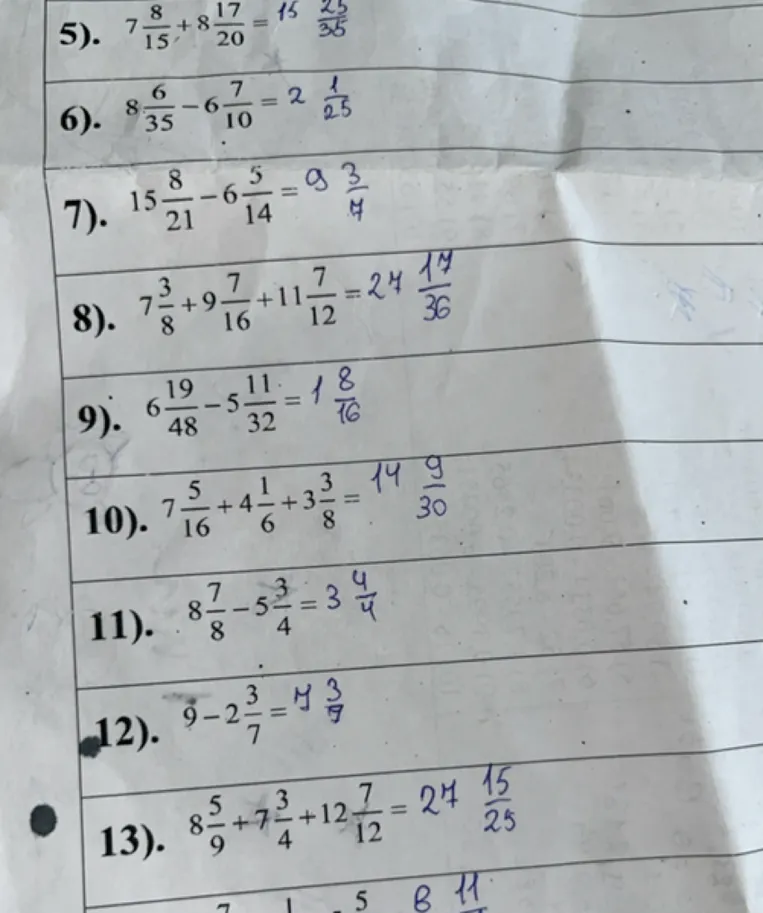 5). 7 8/15 + 8 17/20 = 15 25/35
6). 8 6/35 − 6 7/10 = 2 1/25
7). 15 8/21 − 6 5/14 = 9 3/7
8). 7 3/8 + 9 7/16 + 11 7/12 = 27 17/36
9). 6 19/48 − 5 11/32 = 1 8/16
10). 7 5/16 + 4 1/6 + 3 3/8 = 14 9/30
11). 8 7/8 − 5 3/4 = 3 4/4
12). 9 − 2 3/7 = 7 3/7
13). 8 5/9 + 7 3/4 + 12 7/12 = 27 15/25